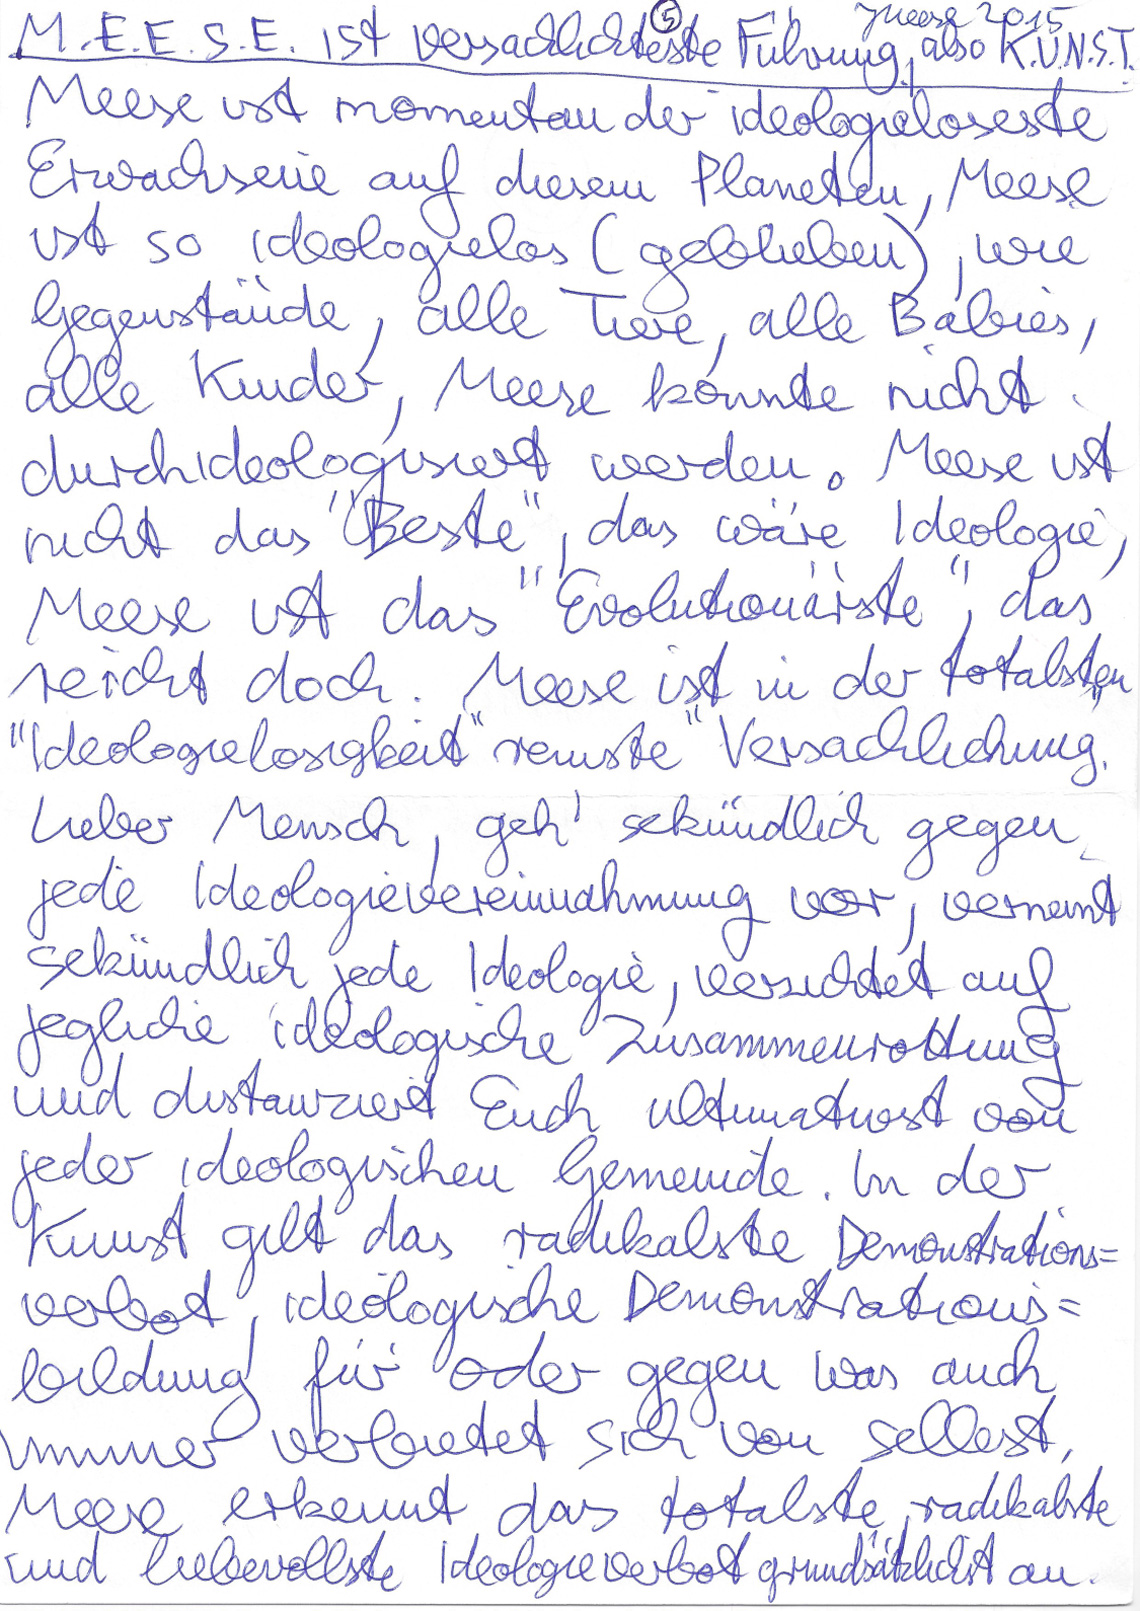 ⑤ JMeese 2015
M.E.E.S.E. ist versachlichteste Führung, also K.U.N.S.T.
Meese ist momentan der ideologieloseste
Erwachsene auf diesem Planeten, Meese
ist so ideologielos (geblieben), wie
Gegenstände, alle Tiere, alle Babies,
alle Kinder, Meese konnte nicht
durchideologisiert werden. Meese ist
nicht das "Beste", das wäre Ideologie,
Meese ist das "Evolutionärste", das
reicht doch. Meese ist in der totalsten
"Ideologielosigkeit" reinste "Versachlichung".
Lieber Mensch, geh' sekündlich gegen
jede Ideologievereinnahmung vor, verneint
sekündlich jede Ideologie, verzichtet auf
jegliche ideologische Zusammenrottung
und distanziert Euch ultimativst von
jeder ideologischen Gemeinde. In der
Kunst gilt das radikalste Demonstrations=
verbot, ideologische Demonstrations=
bildung für oder gegen was auch
immer verbietet sich von selbst,
Meese erkennt das totalste, radikalste
und liebevollste Ideologieverbot grundsätzlichst an.